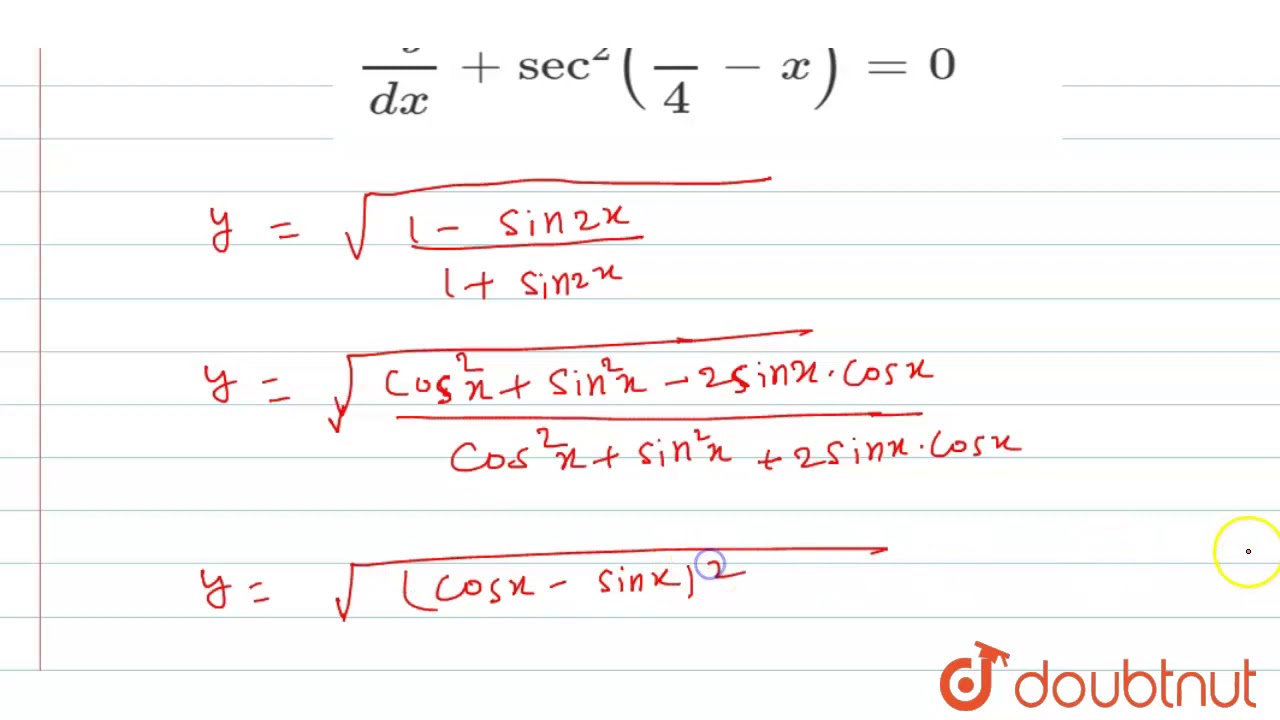 dx + sec²( /4 − x) = 0
y = √(1 - sin2x / 1 + sin2x)
y = √(cos²x + sin²x - 2sinx·cosx / cos²x + sin²x + 2sinx·cosx)
y = √(cosx - sinx)²
doubtnut